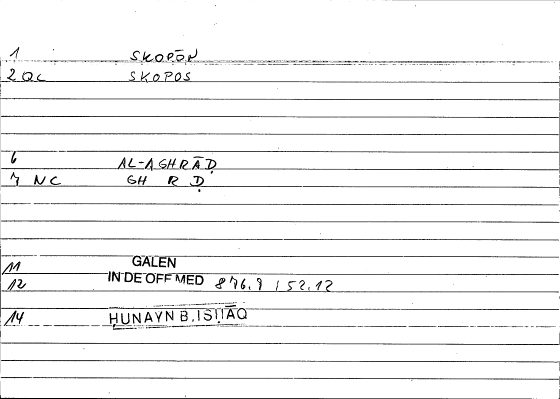 1 SKOPŌN
2 QC SKOPOS
6 AL-AGHRĀḌ
7 NC GH R Ḍ
11 GALEN
12 IN DE OFF MED 876.9 / 52.12
14 ḤUNAYN B. ISḤĀQ